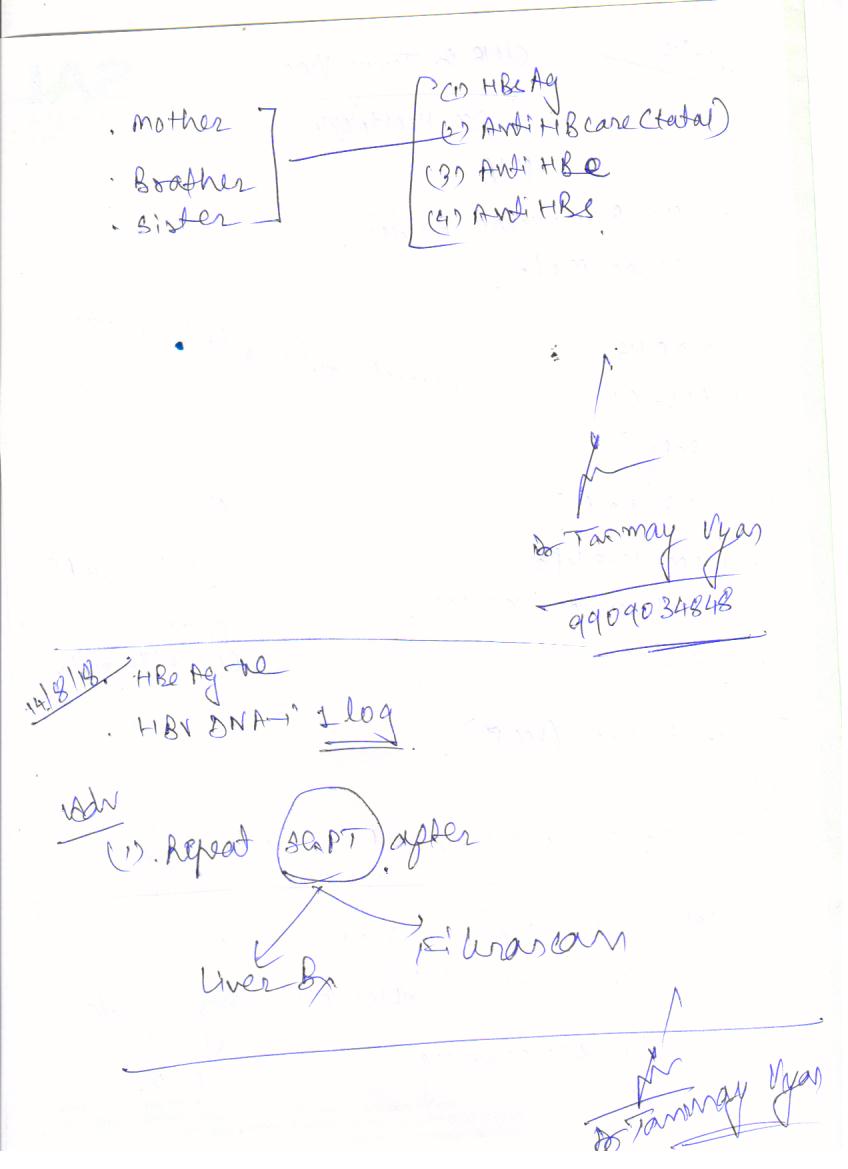 . Mother
. Brother
. Sister
(1) HBsAg
(2) Anti HBcore (total)
(3) Anti HBe
(4) Anti HBs.
Dr Tanmay Vyas
9909034848
14/8/18. HBe Ag -ve
. HBV DNA → 1 log
Adv
(1). Repeat SGPT after
Liver Bx
Fibroscan
Dr Tanmay Vyas